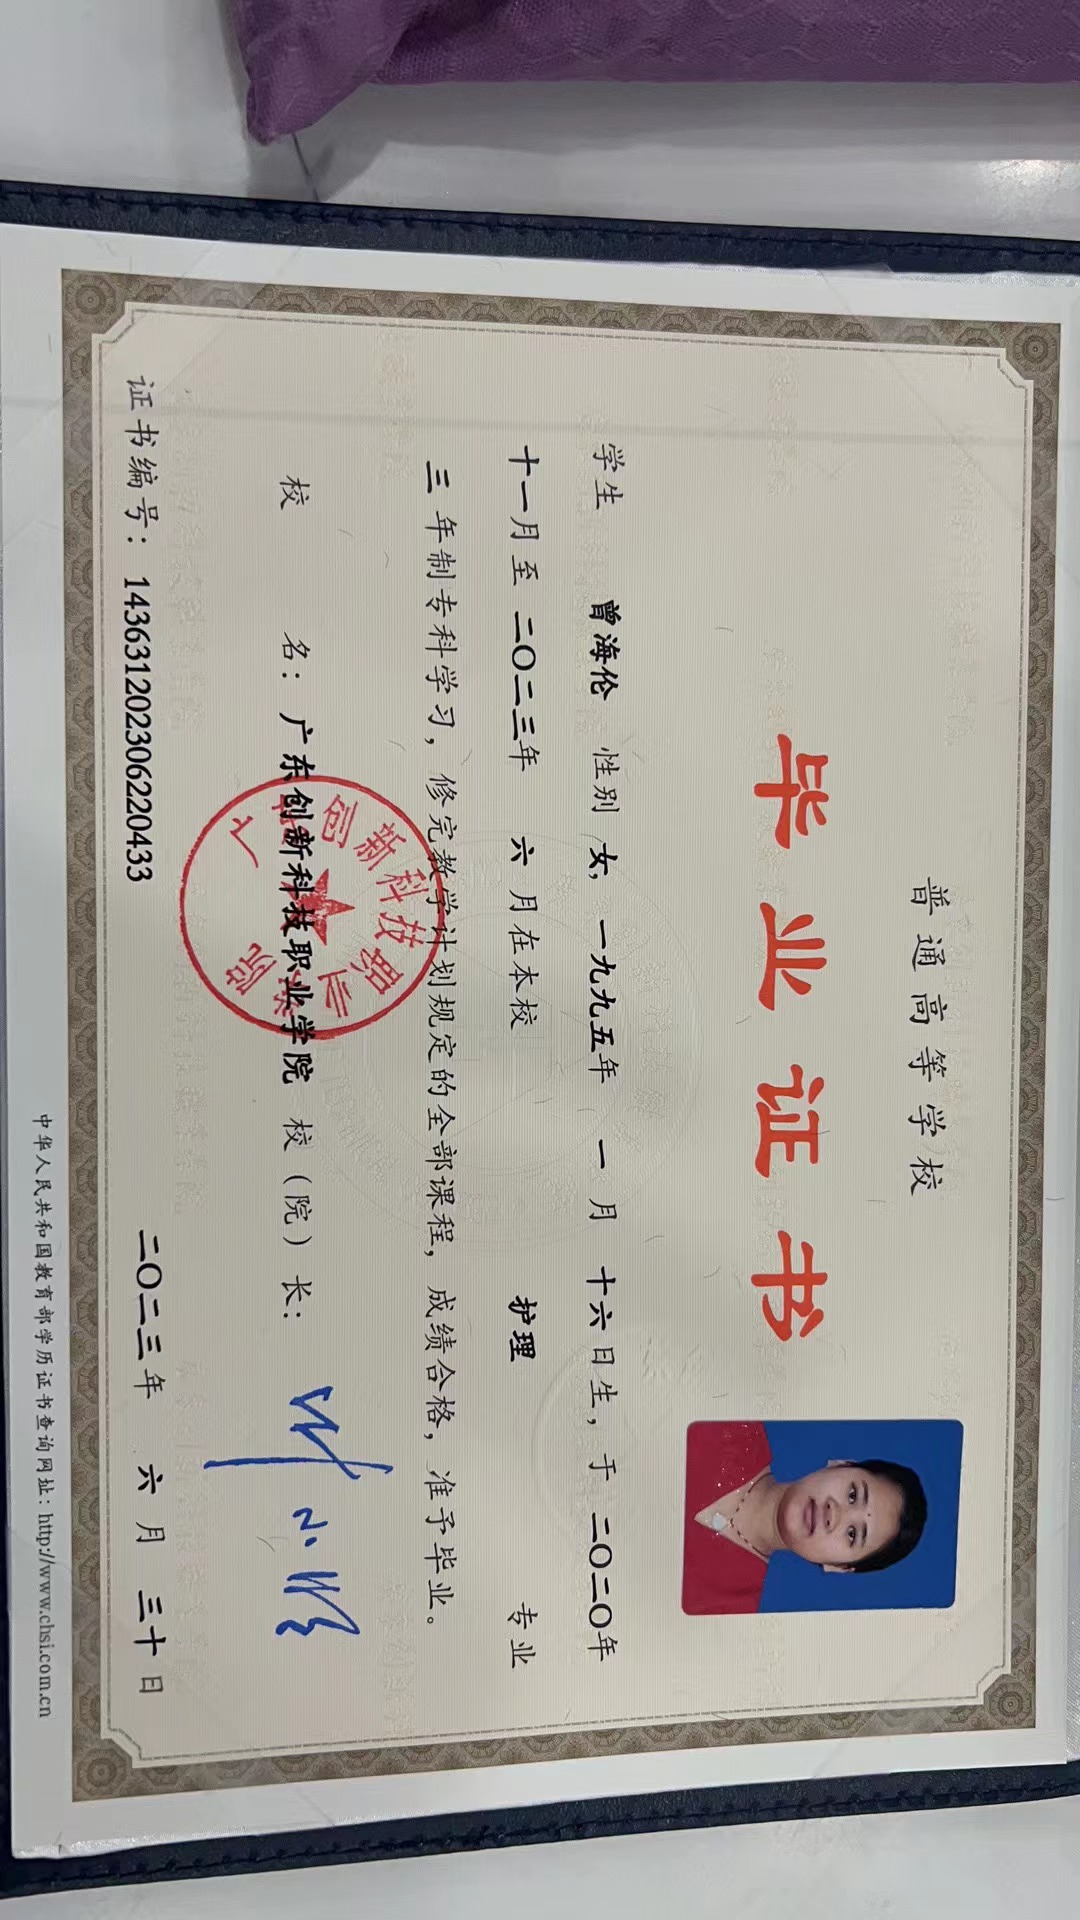 普通高等学校
毕业证书
学生 曾海伦 性别 女，一九九五年 一 月 十六日生，于 二〇二〇年
十一月至 二〇二三年 六 月在本校 护理 专业
三 年制专科学习，修完教学计划规定的全部课程，成绩合格，准予毕业。
校 名：广东创新科技职业学院 校（院）长：
广东创新科技职业学院
证书编号：143631202306220433 二〇二三年 六 月 三十日
中华人民共和国教育部学历证书查询网址：http://www.chsi.com.cn